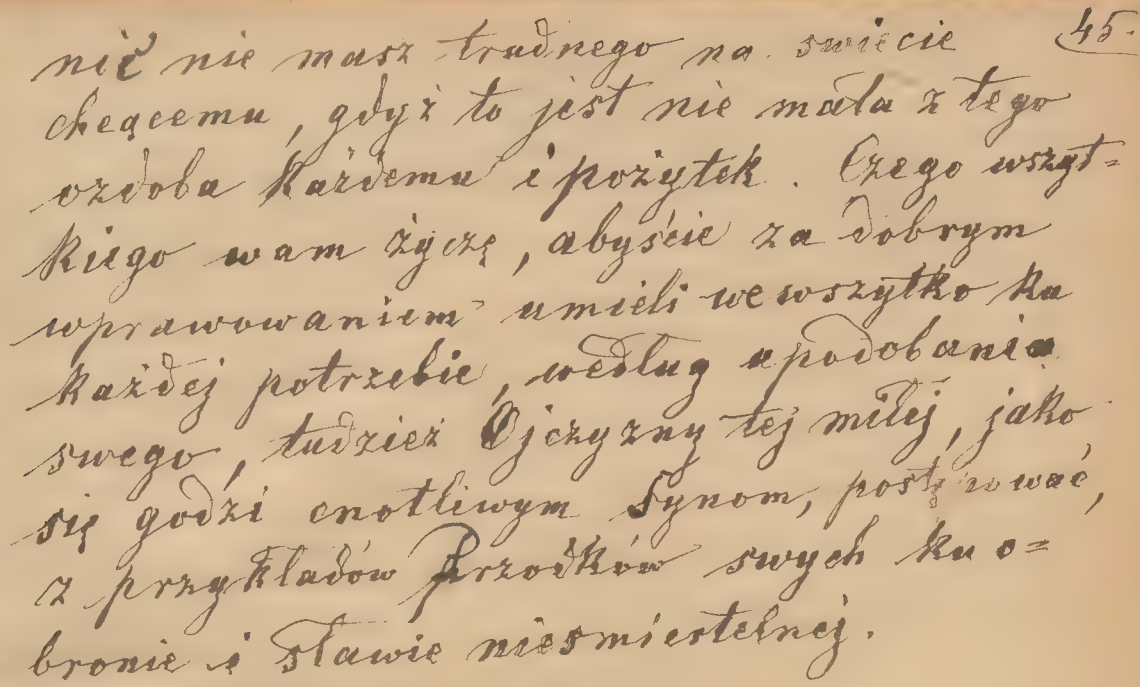 45.
nić nie masz trudnego na swiecie
chcącemu, gdyż to jest nie mała z tego
ozdoba każdemu i pożytek. Czego wszyt=
kiego wam życzę, abyście za dobrym
wprawowaniem umieli we wszytko ku
każdej potrzebie, według upodobania
swego, tudzież Ojczyzny tej miłej, jako
się godzi cnotliwym Synom, postępować,
z przykładów Przodków swych ku o=
bronie i sławie niesmiertelnej.